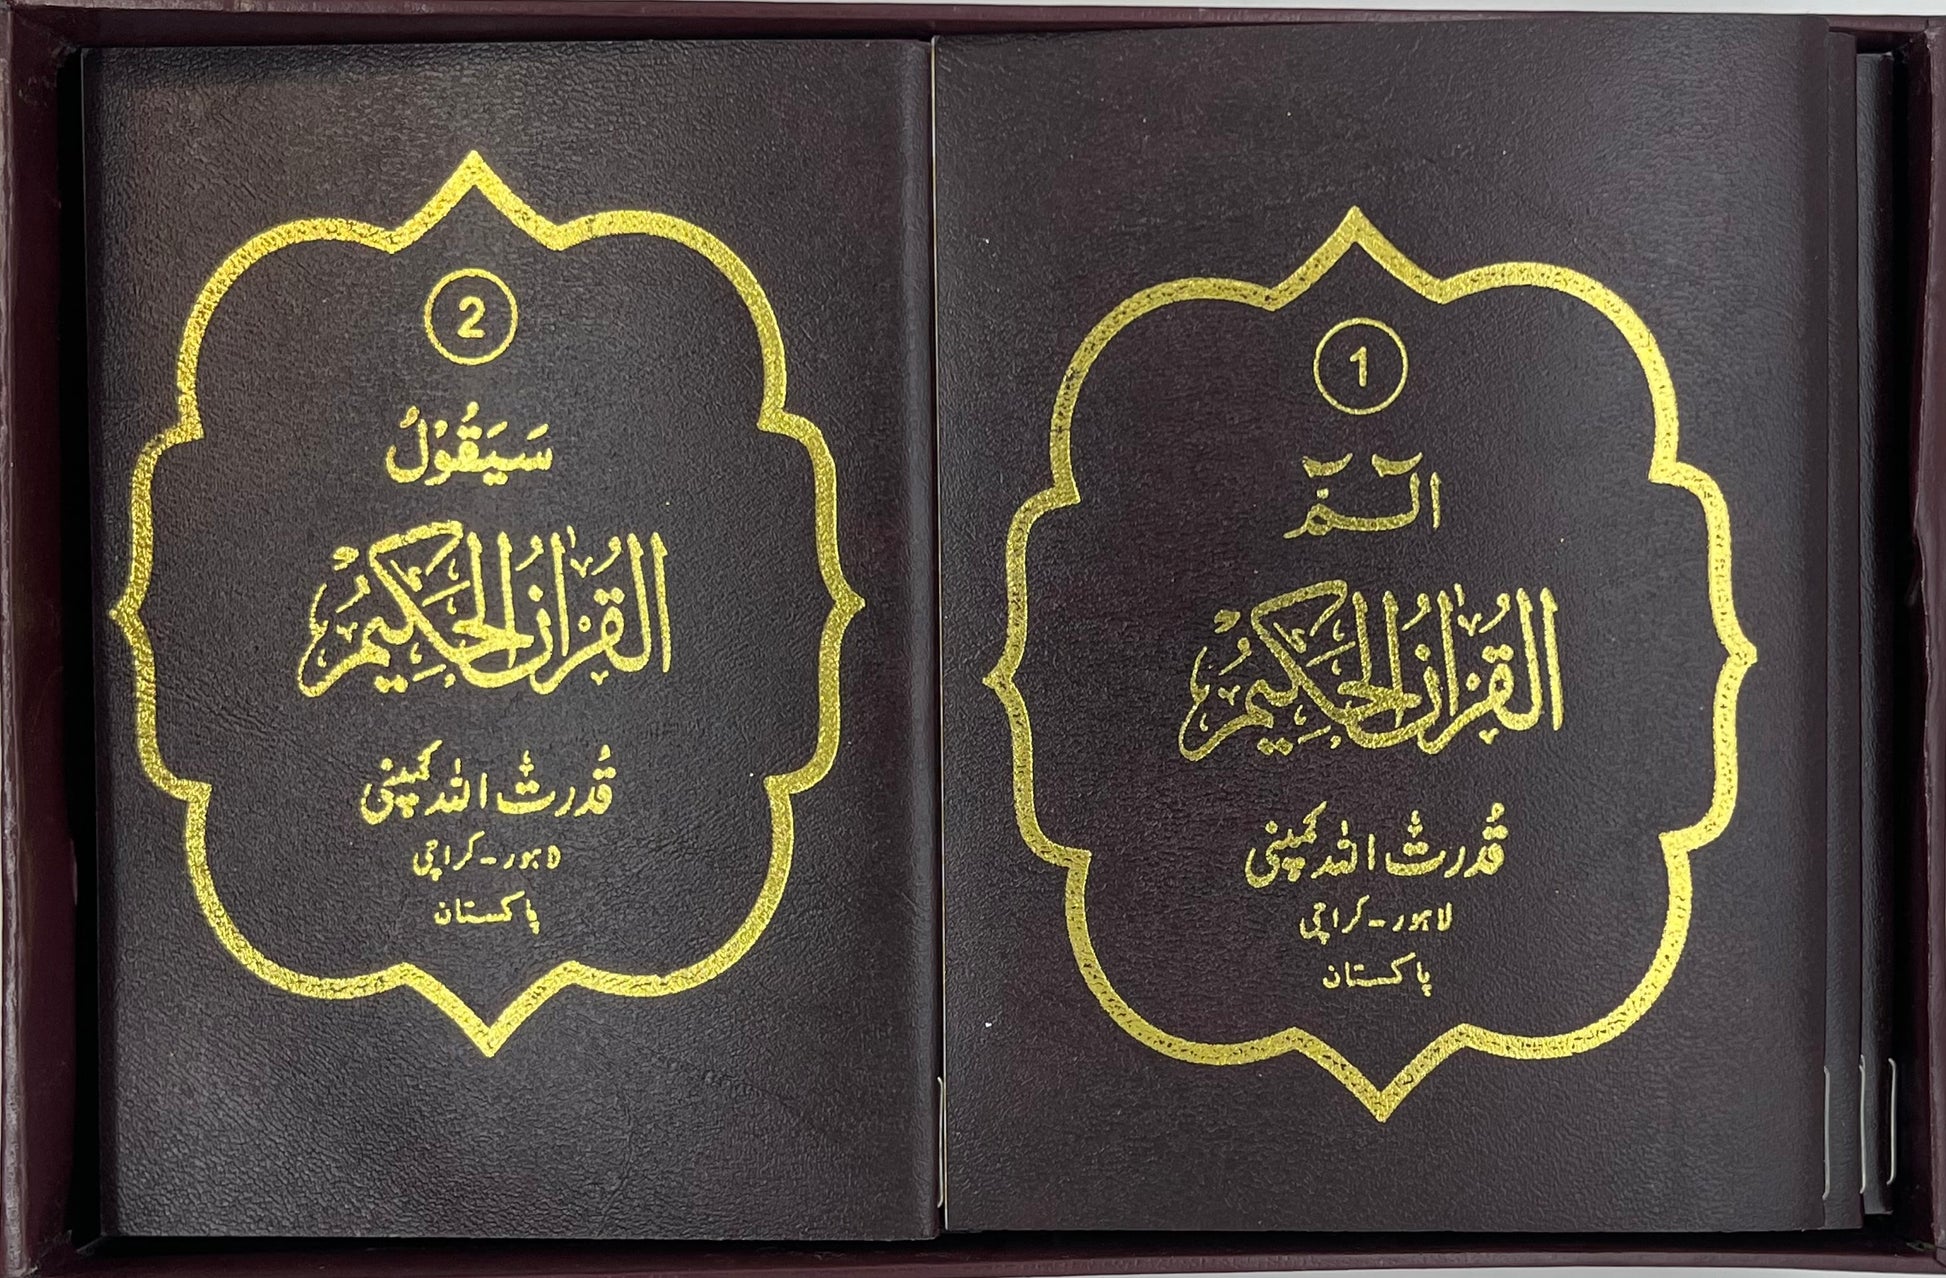 1
الٓمّٓ
القُرْاٰنُ الحَكِيمْ
قُدرت اللہ کمپنی
لاہور - کراچی
پاکستان
2
سَيَقُوْلُ
القُرْاٰنُ الحَكِيمْ
قُدرت اللہ کمپنی
لاہور - کراچی
پاکستان